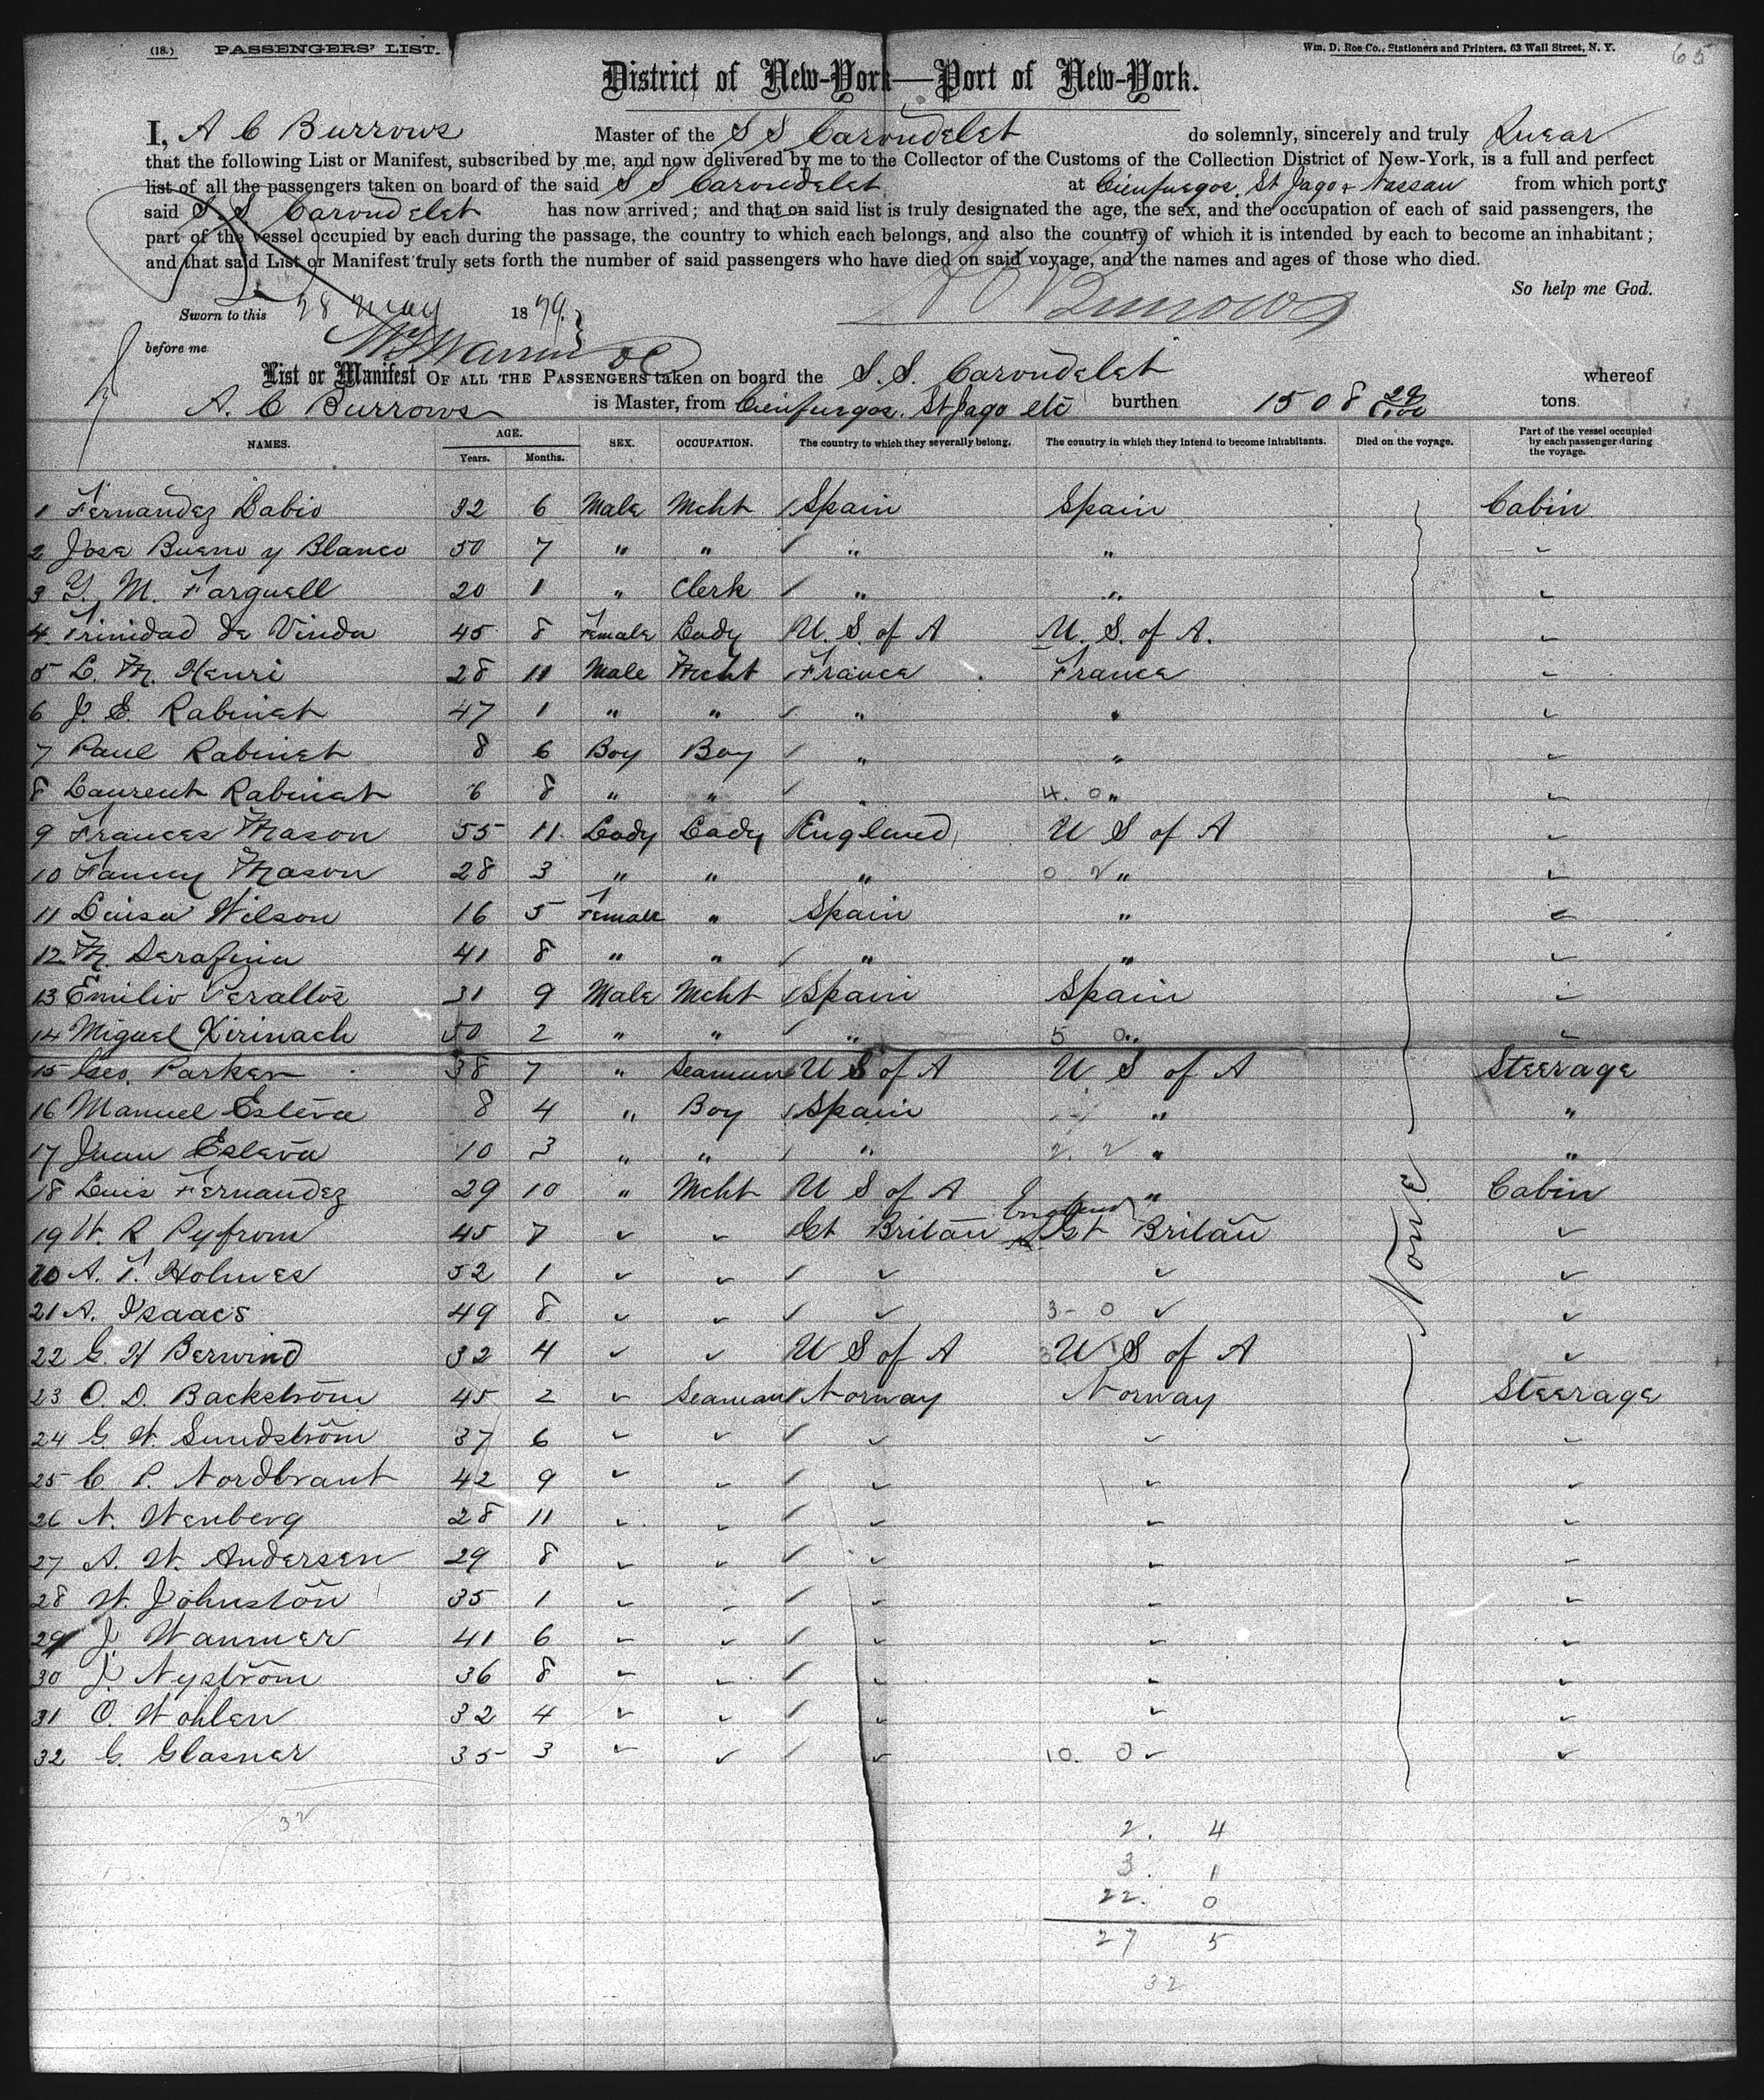 (18.) PASSENGERS' LIST. Wm. D. Roe Co., Stationers and Printers, 63 Wall Street, N. Y. 65
District of New-York—Port of New-York.
I, A C Burrows Master of the S S Carondelet do solemnly, sincerely and truly Swear
that the following List or Manifest, subscribed by me, and now delivered by me to the Collector of the Customs of the Collection District of New-York, is a full and perfect
list of all the passengers taken on board of the said S S Carondelet at Cienfuegos, St Jago & Nassau from which ports
said S. S Carondelet has now arrived; and that on said list is truly designated the age, the sex, and the occupation of each of said passengers, the
part of the vessel occupied by each during the passage, the country to which each belongs, and also the country of which it is intended by each to become an inhabitant;
and that said List or Manifest truly sets forth the number of said passengers who have died on said voyage, and the names and ages of those who died.
So help me God.
A C Burrows
Sworn to this 28 May 1879.
before me
List or Manifest OF ALL THE PASSENGERS taken on board the S. S. Carondelet whereof
A. C Burrows is Master, from Cienfuegos, St Jago etc burthen 1508 29/100 tons
NAMES. AGE. Years. Months. SEX. OCCUPATION. The country to which they severally belong. The country in which they intend to become inhabitants. Died on the voyage. Part of the vessel occupied by each passenger during the voyage.
1 Fernandez Babio 32 6 Male Mcht Spain Spain Cabin
2 Jose Bueno y Blanco 50 7 " " " "
3 Y. M. Farguell 20 1 " Clerk " "
4 Trinidad de Vinda 45 8 Female Lady U. S. of A U. S. of A.
5 L. M. Henri 28 11 Male Mcht France France
6 J. E. Rabinet 47 1 " " " "
7 Paul Rabinet 8 6 Boy Boy " "
8 Laurent Rabinet 6 8 " " " 4. 0 "
9 Frances Mason 55 11 Lady Lady England U S of A
10 Fanny Mason 28 3 " " " 0 2 "
11 Luisa Wilson 16 5 Female " Spain "
12 M. Serafina 41 8 " " " "
13 Emilio Perallos 31 9 Male Mcht Spain Spain
14 Miguel Xirinach 50 2 " " " 5 0 "
15 Geo. Parker 38 7 " Seaman U S of A U S of A Steerage
16 Manuel Esteva 8 4 " Boy Spain " "
17 Juan Esteva 10 3 " " " 2. 2 " "
18 Luis Fernandez 29 10 " Mcht U S of A " Cabin
England
19 W. R Pyfrom 45 7 Gt Britan Gt Britan
20 A. T. Holmes 52 1
21 A. Isaacs 49 8 3- 0
22 G. H Berwind 32 4 U S of A U S of A
23 O. D. Backström 45 2 Seaman Norway Norway Steerage
24 G. W. Sundström 37 6
25 C. P. Nordbrant 42 9
26 N. Wenberg 28 11
27 A. W. Andersen 29 8
28 W. Johnston 35 1
29 J. Wanmer 41 6
30 J. Nyström 36 8
31 O. Wohlen 32 4
32 G. Glasner 35 3 10. 0
None
32
2. 4
3. 1
22. 0
27 5
32